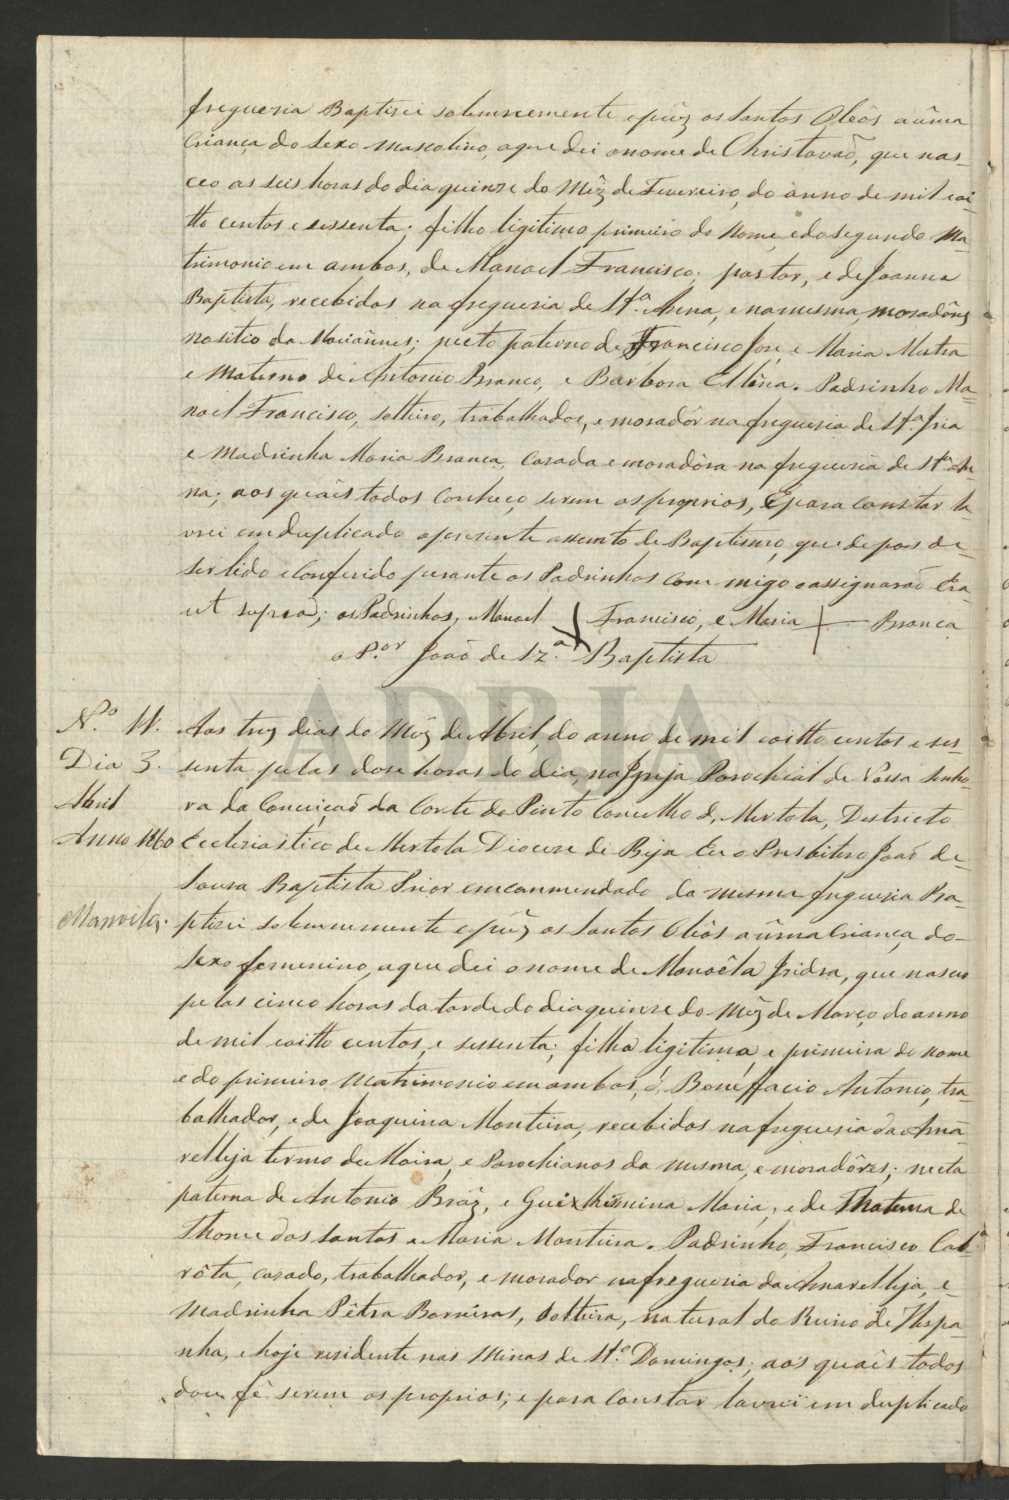 freguesia Baptisei solemnemente e púz os Santos Oleôs a ûma
Criança do Sexo masculino, aque dei o nome de Christovaõ, que nas-
ceo as seis horas do dia quinze do Mêz de Fevereiro, do anno de mil oi-
tto centos e sessenta; filho ligitimo primeiro do nome, e do segundo Ma-
trimonio em ambos, de Manoel Francisco, pastor, e de Joanna
Baptista, recebidos na freguesia de Stª. Anna, e na mesma, moradôres
no sitio da Mariânnes; neto paterno de Francisco José, e Maria Mestra
e Materno de Antonio Branco, e Barbora Ellêna. Padrinho Ma-
noel Francisco, solteiro, trabalhador, e moradôr na freguesia de Stª. Iria
e Madrinha Maria Branca, Casada e moradôra na freguesia de Stª. An-
na; aos quaîs todos Conheço serem os proprios, E para constar la-
vrei em duplicado o presente assento de Baptismo, que depois de-
ser lido e Conferido perante os Padrinhos Com migo o assignaraõ Era
ut supra; os Padrinhos, Manoel + Francisco, e Maria + Branca
o P.or Joaõ de Sz.ª Baptista
N.º 11. Aos trez dias do Mêz de Abril, do anno de mil oitto centos e ses-
Dia 3. senta pelas dose horas do dia, na Igreja Parochial de Nossa Senho-
Abril ra da Conceiçaõ da Corte do Pinto Concelho de Mertola, Destricto
Anno 1860 Ecclesiastico de Mertola Diocese de Beja Eu o Presbitero Joaõ de-
Sousa Baptista Prior emcommendado da mesma freguesia Ba-
Manoila. ptisei solemnemente e púz os Santos Oliôs a ûma Criança do-
Sexo femenino, aque dei o nome de Manoêla Izidra, que nasceo
pelas cinco horas da tarde do dia quinze do Mêz de Março do anno
de mil oitto centos, e sessenta; filha ligitima, e primeira do nome
e do primeiro Matrimonio em ambos, de Boniffacio Antonio, tra-
balhador, e de Joaquina Monteira, recebidos na freguesia da Ama-
relleja termo de Moira, e Parochianos da mesma, e moradôres; neta
paterna de Antonio Brâz, e Guilhermina Maria; e de Materna de
Thome dos Santos e Maria Monteira. Padrinho, Francisco Cal-
rôta, casado, trabalhador, e morador na freguesia da Amarelleja, e-
Madrinha Pêtra Borreiras, Solteira, natural do Reino de Hespa-
nha, e hoje residente nas Minas de Stº. Domingos; aos quaîs todos
dou fé serem os proprios; e para constar lavrei em duplicado
ADBJA